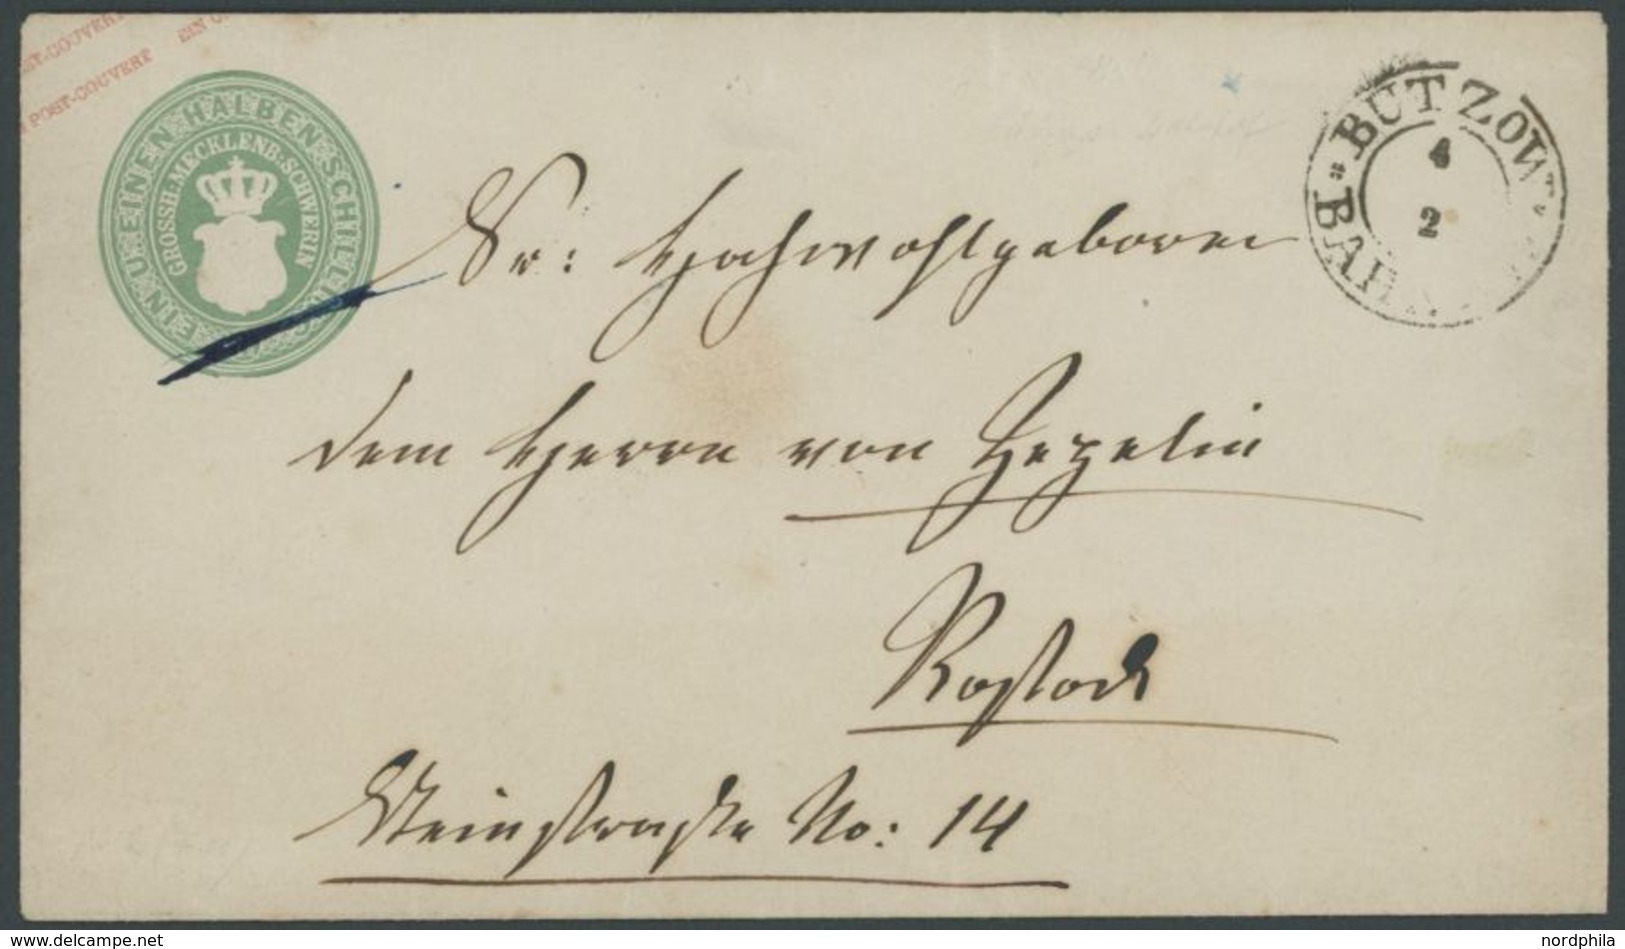 POST-COUVERT EIN
POST-COUVERT
EIN U. EINEN HALBEN SCHILLING
GROSSH. MECKLENB: SCHWERIN
BUTZOW
4
2
BAHN
Sr: Hochwohlgeboren
dem Herrn von Zepelin
Rostock
Steinstraße No: 14
www.delcampe.net
nordphila